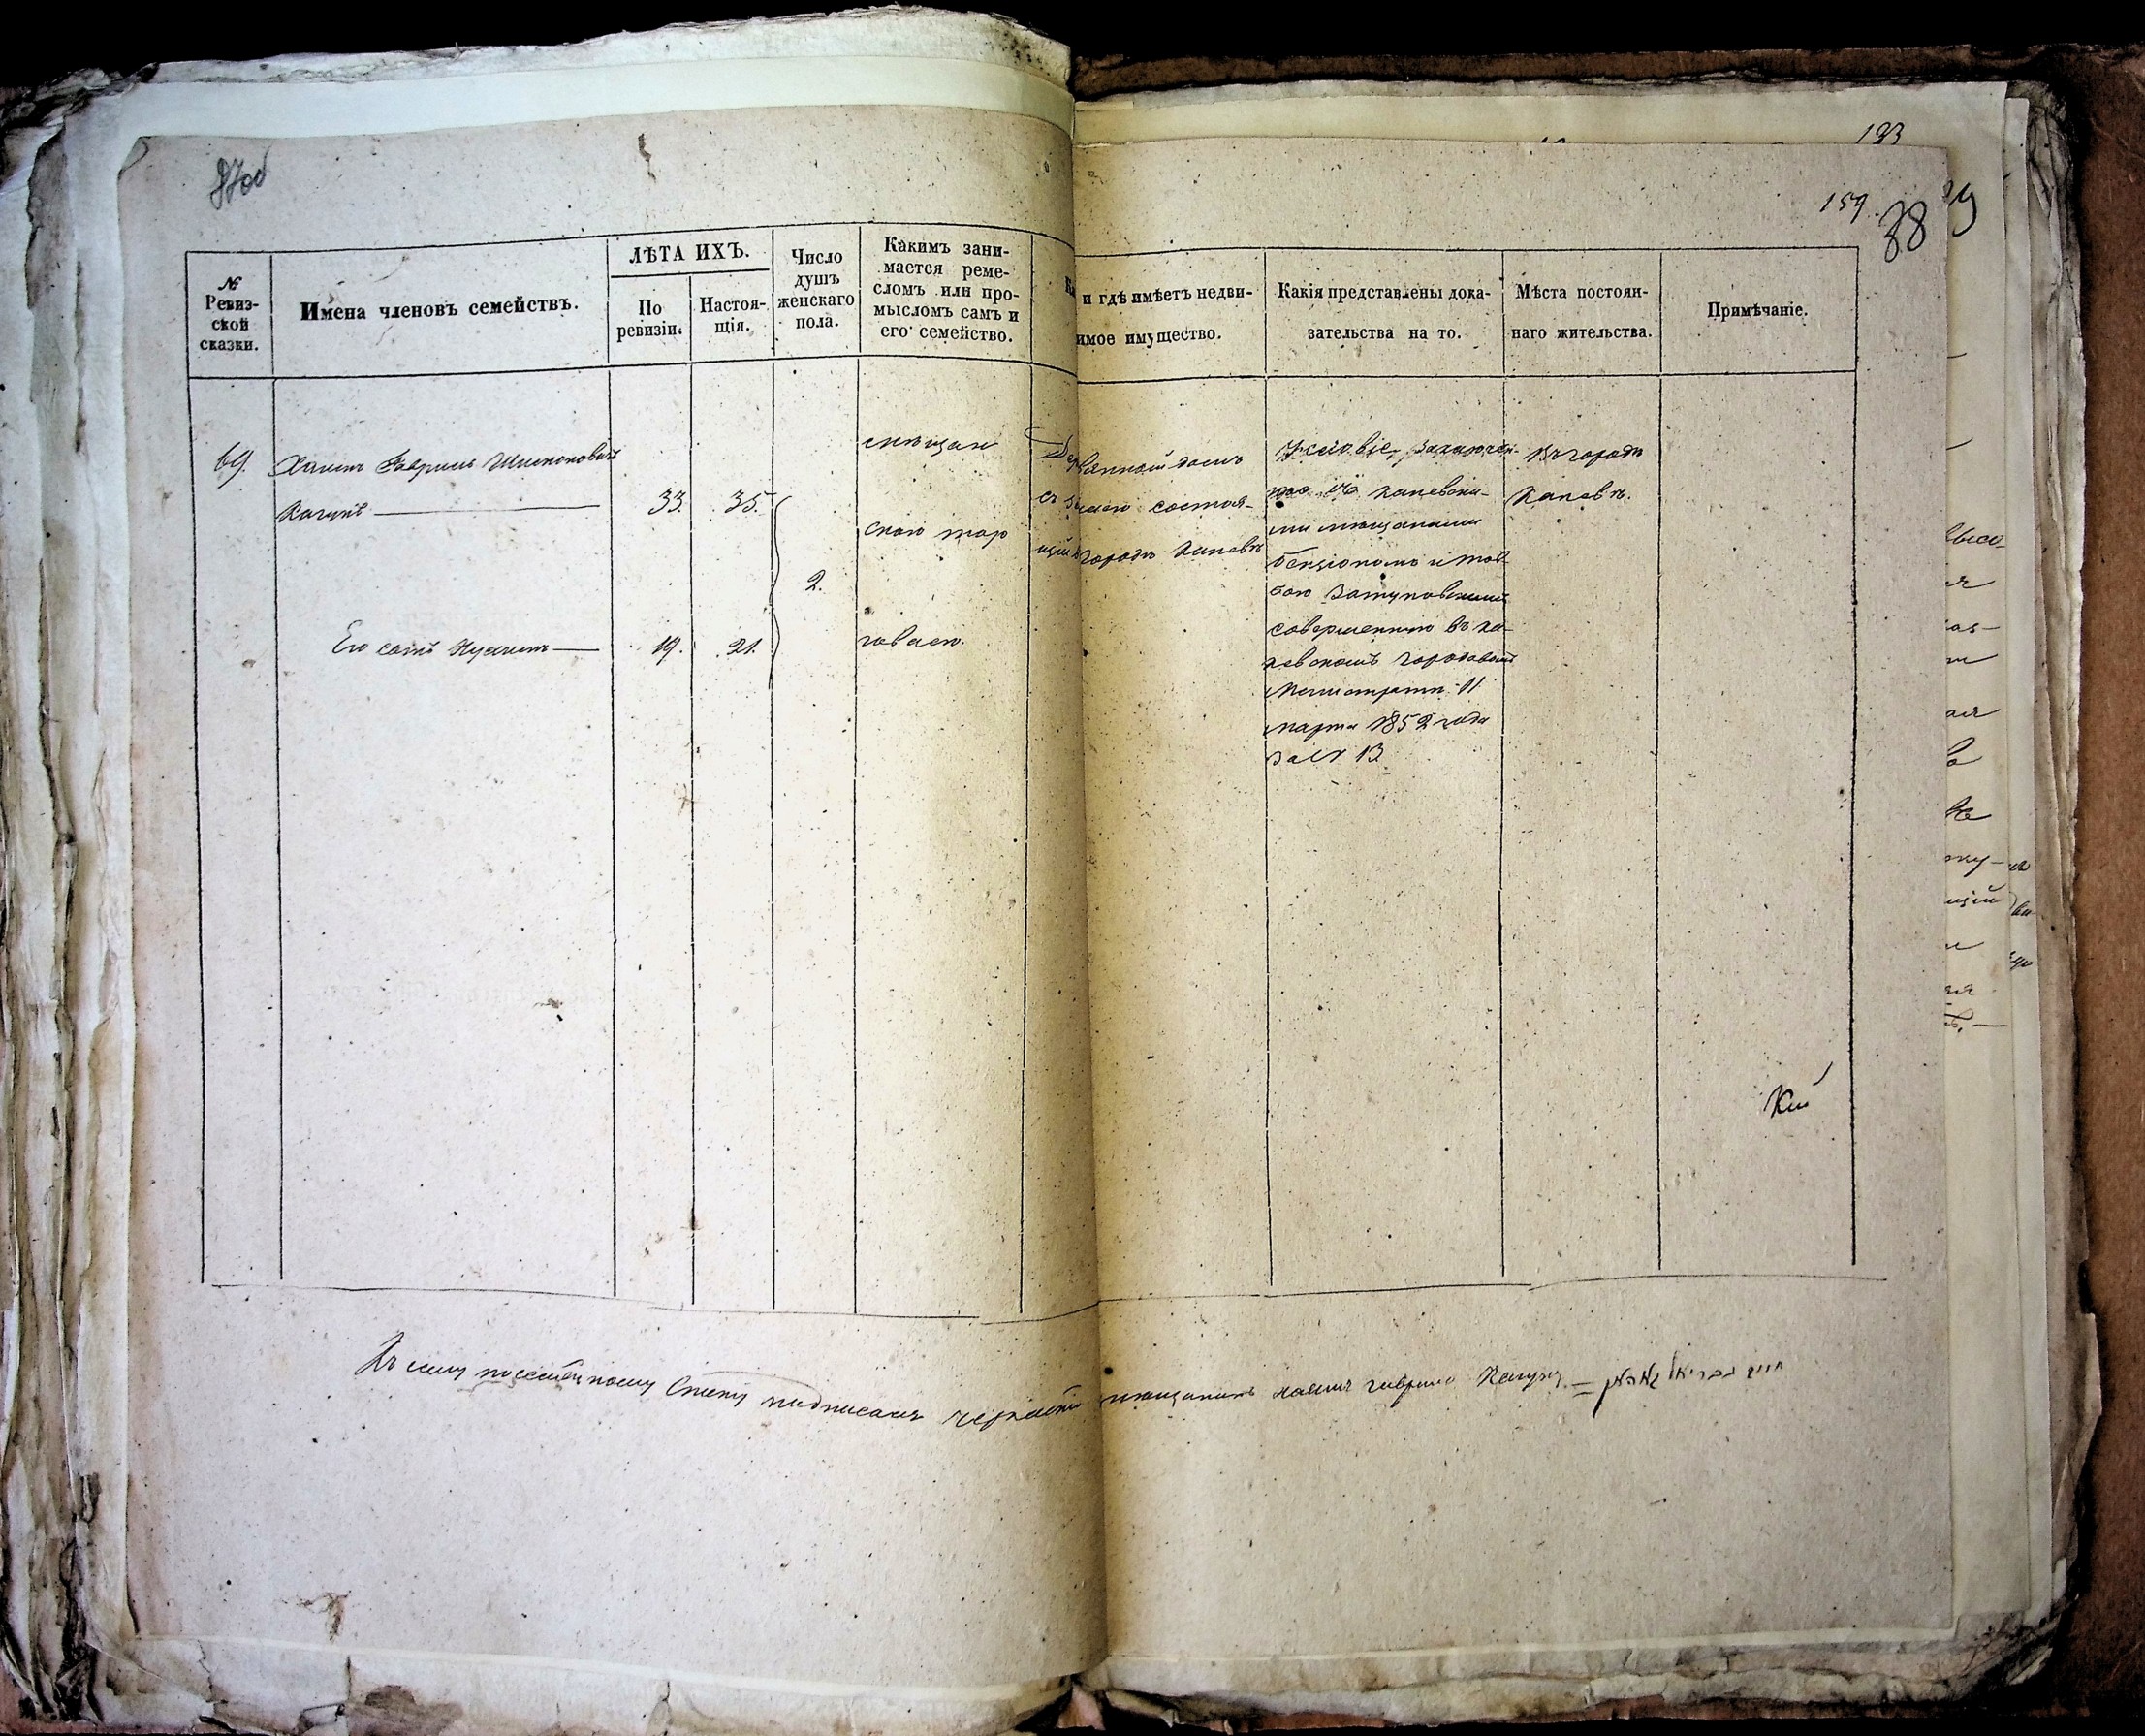 87об
193
159
38
№
Ревиз-
ской
сказки.
Имена членовъ семействъ.
ЛѢТА ИХЪ.
По
ревизіи.
Настоя-
щія.
Число
душъ
женскаго
пола.
Какимъ зани-
мается реме-
сломъ или про-
мысломъ самъ и
его семейство.
и гдѣ имѣетъ недви-
имое имущество.
Какія представлены дока-
зательства на то.
Мѣста постоян-
наго жительства.
Примѣчаніе.
69.
Хаимъ Гавриль Шимоновичъ
33. 35.
Его сынъ
19. 21.
2.
мѣщан
скою тор
говлею.
домъ
состоя-
городѣ Каневѣ
Условіе, заключен-
ное съ каневски-
ми мѣщанами
Бенціономъ и
совершенно въ ка-
невскомъ городовомъ
Магистратѣ 11
марта 1852 года
за № 13
Въ городѣ
Каневѣ.
Къ сему посемейному списку подписался мѣщанинъ Хаимъ Гаврило חיים גבריאל